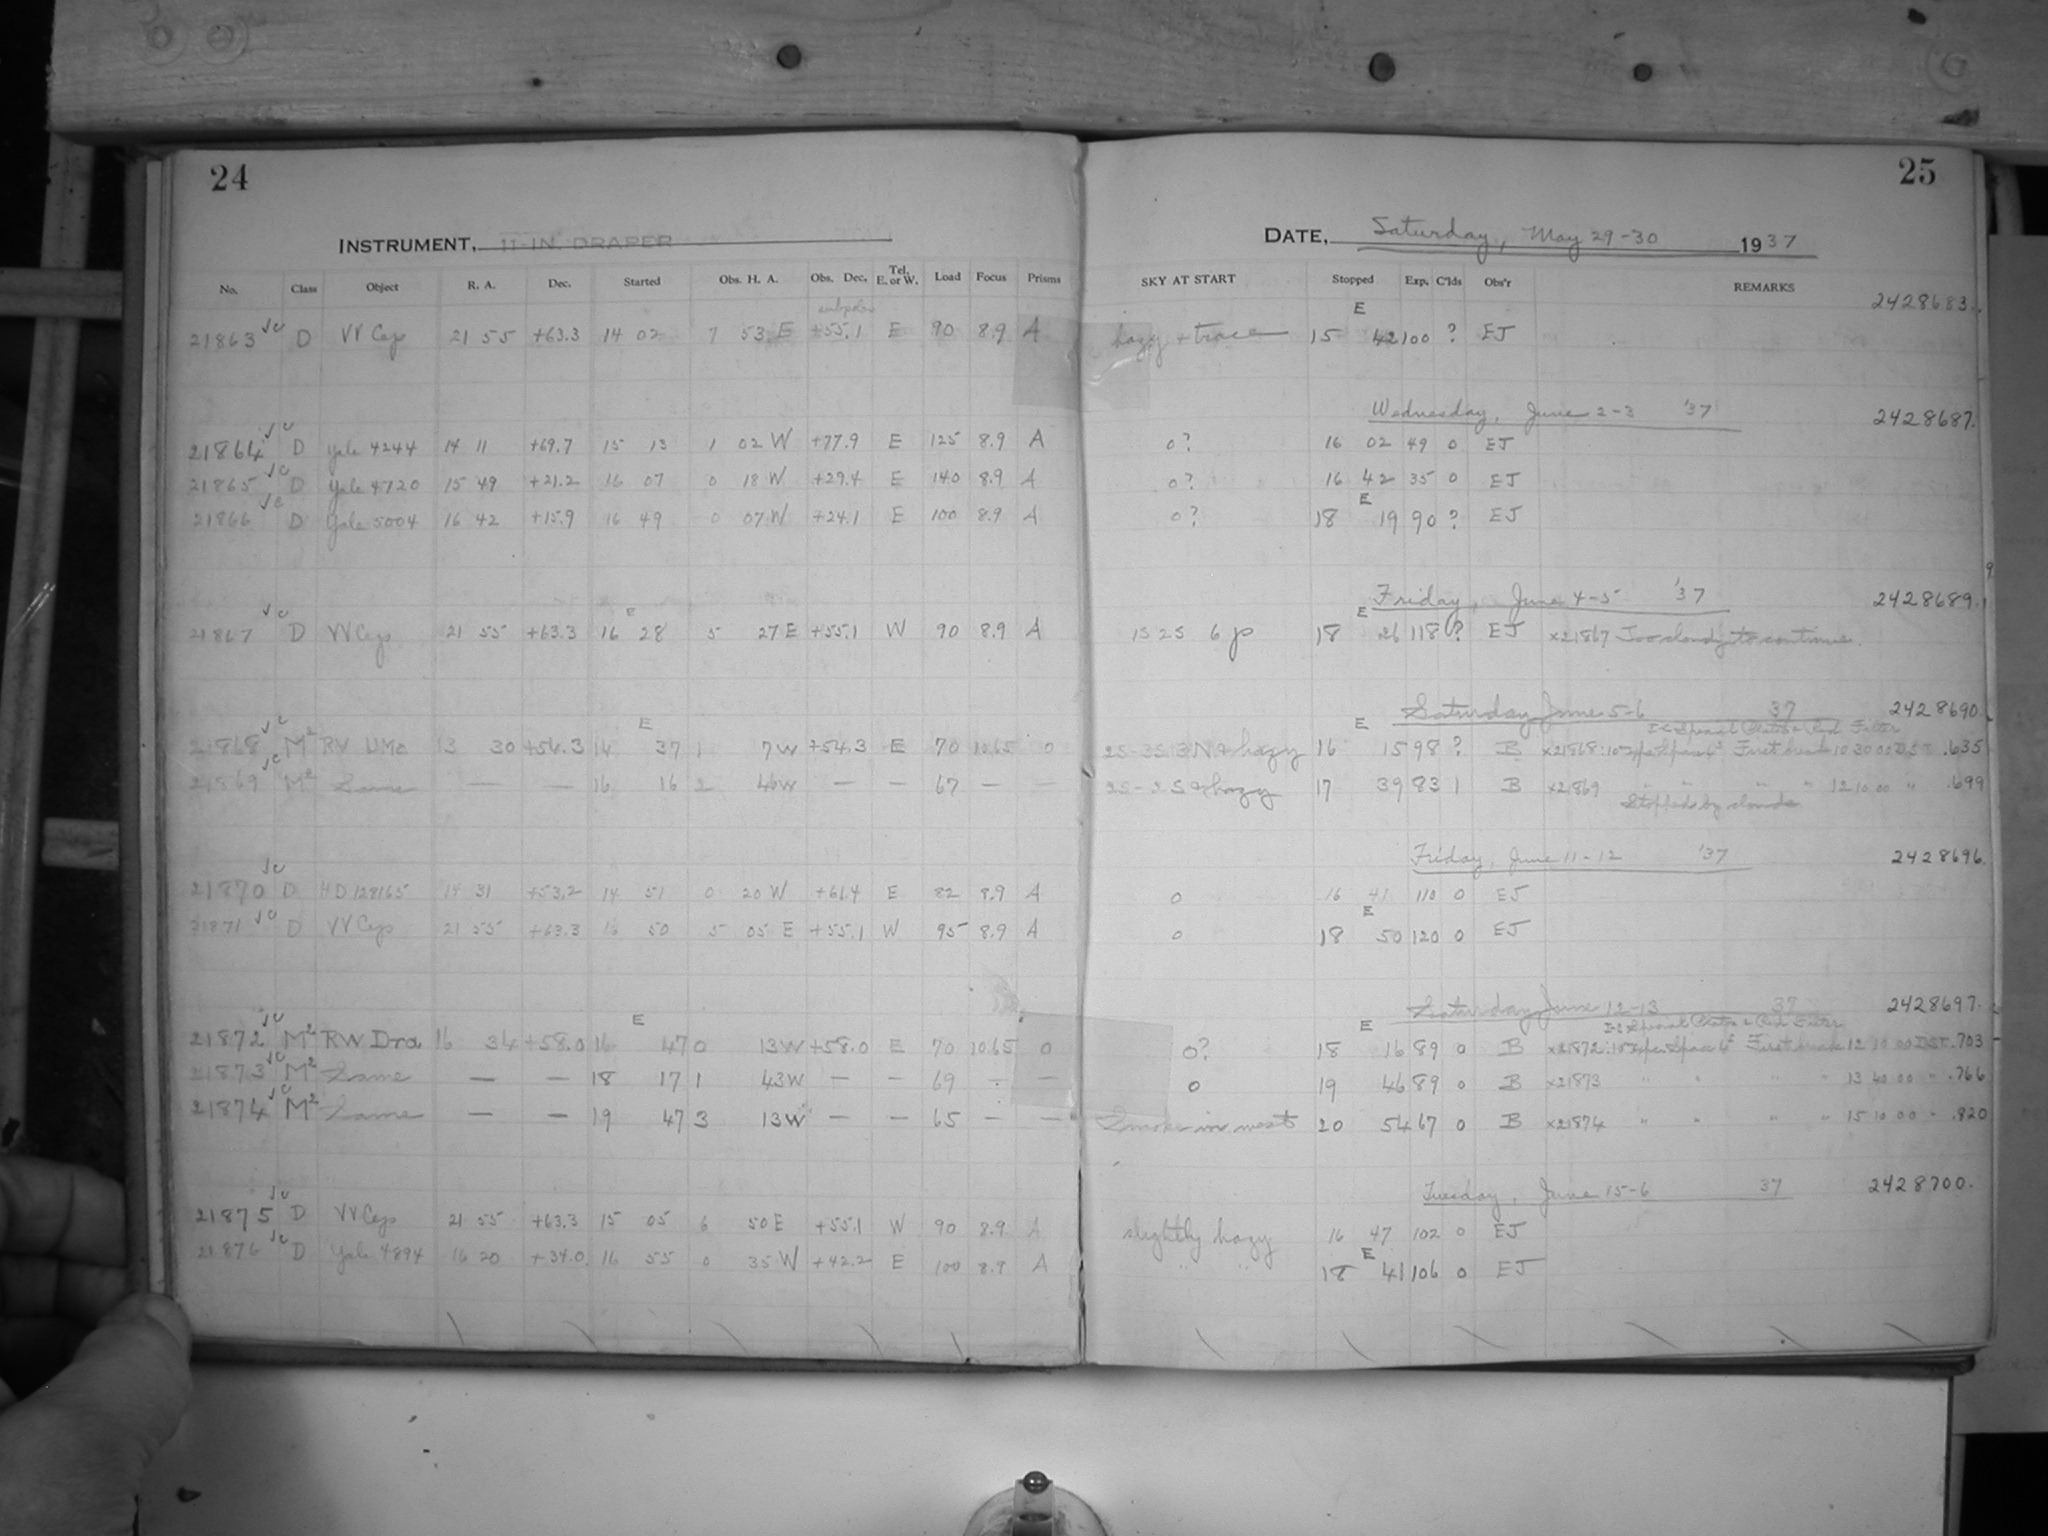 24
INSTRUMENT, 11-IN. DRAPER
No. Class Object R. A. Dec. Started Obs. H. A. Obs. Dec. Tel. E. or W. Load Focus Prisms
subpolar
21863 D VV Cep 21 55 +63.3 14 02 7 53 E +55.1 E 90 8.9 A
21864 D Yale 4244 14 11 +69.7 15 13 1 02 W +77.9 E 125 8.9 A
21865 D Yale 4720 15 49 +21.2 16 07 0 18 W +29.4 E 140 8.9 A
21866 D Yale 5004 16 42 +15.9 16 49 0 07 W +24.1 E 100 8.9 A
E
21867 D VV Cep 21 55 +63.3 16 28 5 27 E +55.1 W 90 8.9 A
E
21868 M² RV UMa 13 30 +54.3 14 37 1 7 W +54.3 E 70 10.65 0
21869 M² Same — — 16 16 2 46 W — — 67 — —
21870 D HD 128165 14 31 +53.2 14 51 0 20 W +61.4 E 82 8.9 A
21871 D VV Cep 21 55 +63.3 16 50 5 05 E +55.1 W 95 8.9 A
E
21872 M² RW Dra 16 34 +58.0 16 47 0 13 W +58.0 E 70 10.65 0
21873 M² Same — — 18 17 1 43 W — — 69 — —
21874 M² Same — — 19 47 3 13 W — — 65 — —
21875 D VV Cep 21 55 +63.3 15 05 6 50 E +55.1 W 90 8.9 A
21876 D Yale 4894 16 20 +34.0 16 55 0 35 W +42.2 E 100 8.9 A
25
DATE, Saturday, May 29-30 1937
SKY AT START Stopped Exp. C'lds Obs'r REMARKS
2428683.
E
hazy + trace 15 42 100 ? EJ
Wednesday, June 2-3 '37 2428687.
0? 16 02 49 0 EJ
0? 16 42 35 0 EJ
E
0? 18 19 90 ? EJ
Friday, June 4-5 '37 2428689.
E
1S 2S 6 p 18 26 118 ? EJ x21867 Too cloudy to continue.
Saturday June 5-6 37 2428690
I-C Special Plates & Red Filter
E
2S-3S 3N & hazy 16 15 98 ? B x21868: First break 10 30 00 DST .635
2S-2S & hazy 17 39 83 1 B x21869 " " " " 12 10 00 " .699
Stopped by clouds
Friday, June 11-12 '37 2428696.
0 16 41 110 0 EJ
E
0 18 50 120 0 EJ
Saturday June 12-13 37 2428697.
I-C Special Plates & Red Filter
E
0? 18 16 89 0 B x21872: First break 12 10 00 DST .703
0 19 46 89 0 B x21873 " " " " 13 40 00 " .766
Smoke in west 20 54 67 0 B x21874 " " " " 15 10 00 " .820
Tuesday, June 15-6 37 2428700.
slightly hazy 16 47 102 0 EJ
E
" " 18 41 106 0 EJ